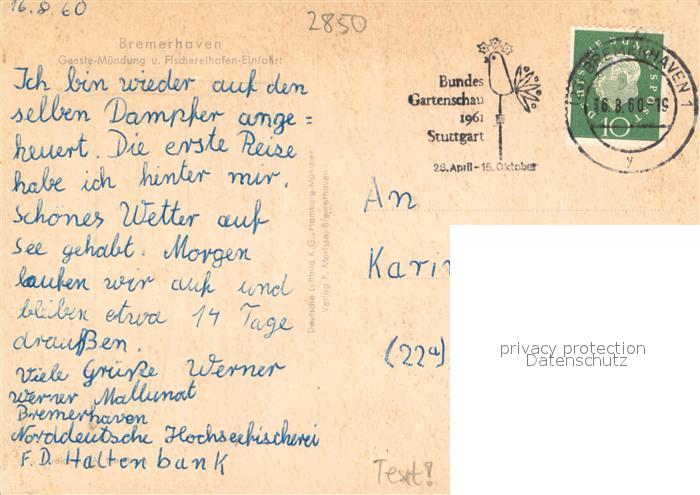 16.8.60
2850
Bremerhaven
Geeste-Mündung u. Fischereihafen-Einfahrt
Ich bin wieder auf den
selben Dampfer ange=
heuert. Die erste Reise
habe ich hinter mir.
Schönes Wetter auf
See gehabt. Morgen
laufen wir auf und
bleiben etwa 14 Tage
draußen.
Viele Grüße Werner
Werner Mallunat
Bremerhaven
Norddeutsche Hochseefischerei
F.D. Haltenbank
Deutsche Luftbild K.G., Hamburg-München
Verlag F. Morisse, Bremerhaven
Bundes
Gartenschau
1961
Stuttgart
28. April - 15. Oktober
DEUTSCHE BUNDESPOST
10
BREMERHAVEN 1
16.8.60-19
y
An
Karin
(22a)
privacy protection
Datenschutz
Text!